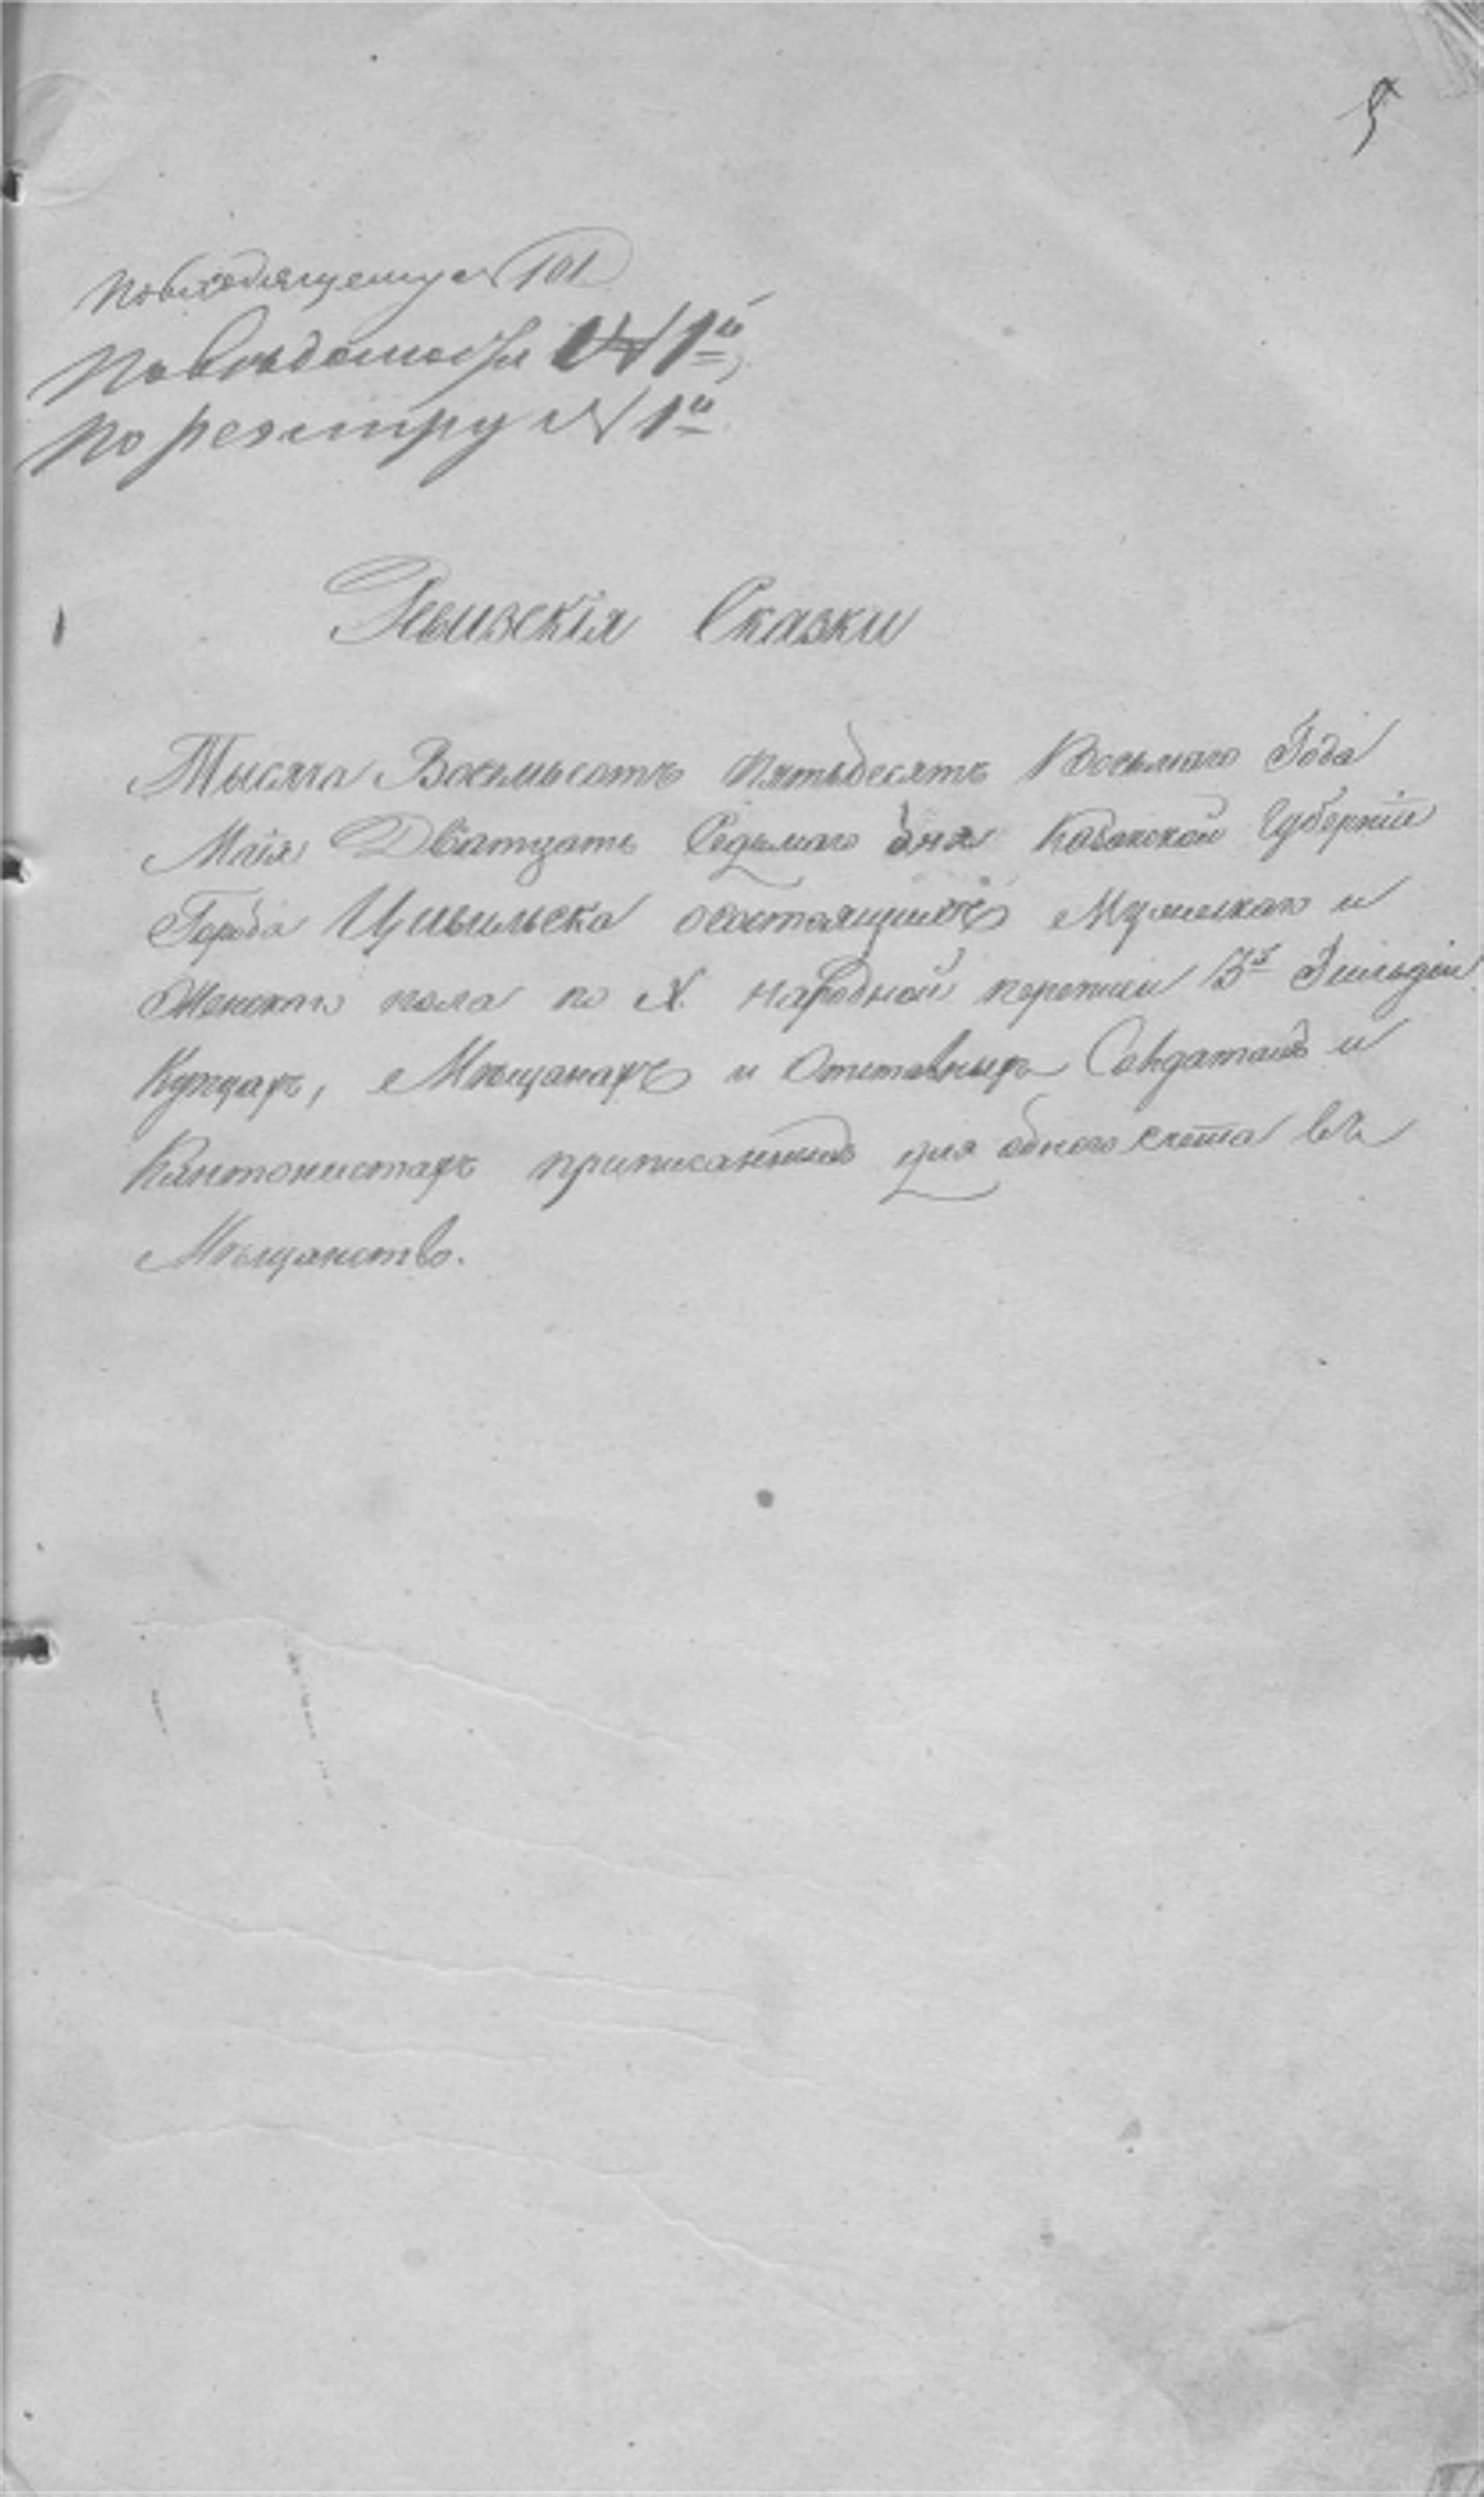 5
По входящему № 101
По ведомости № 1й
По реэстру № 1й
Ревизскія Сказки
Тысяча Восемьсотъ Пятьдесятъ Восьмаго Года
Маія Дватцать Седьмаго дня Казанской Губерніи
Города Цывильска о состоящихъ Мужескаго и
Женскаго пола по X. народной переписи 3й Гильдіи
Купцахъ, Мѣщанахъ и Отставныхъ Солдатахъ и
Кантонистахъ приписанныхъ для одного счета въ
Мѣщанство.